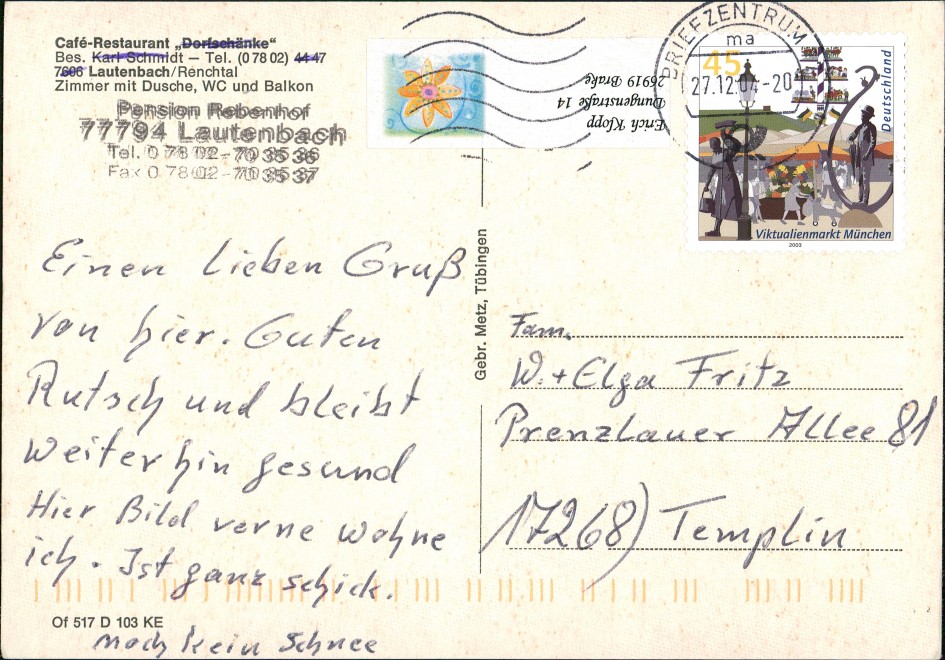 Café-Restaurant „Dorfschänke“
Bes. Karl Schmidt – Tel. (0 78 02) 44 47
7606 Lautenbach/Renchtal
Zimmer mit Dusche, WC und Balkon
Pension Rebenhof
77794 Lautenbach
Tel. 0 78 02 - 70 35 36
Fax 0 78 02 - 70 35 37
Einen lieben Gruß
von hier. Guten
Rutsch und bleibt
weiterhin gesund
Hier Bild vorne wohne
ich. Ist ganz schick.
noch kein Schnee
Of 517 D 103 KE
Gebr. Metz, Tübingen
Erich Klopp
Dungenstraße 14
26919 Brake
BRIEFZENTRUM
ma
27.12.04-20
45
Deutschland
Viktualienmarkt München
2003
Fam.
W. + Elga Fritz
Prenzlauer Allee 81
17268) Templin